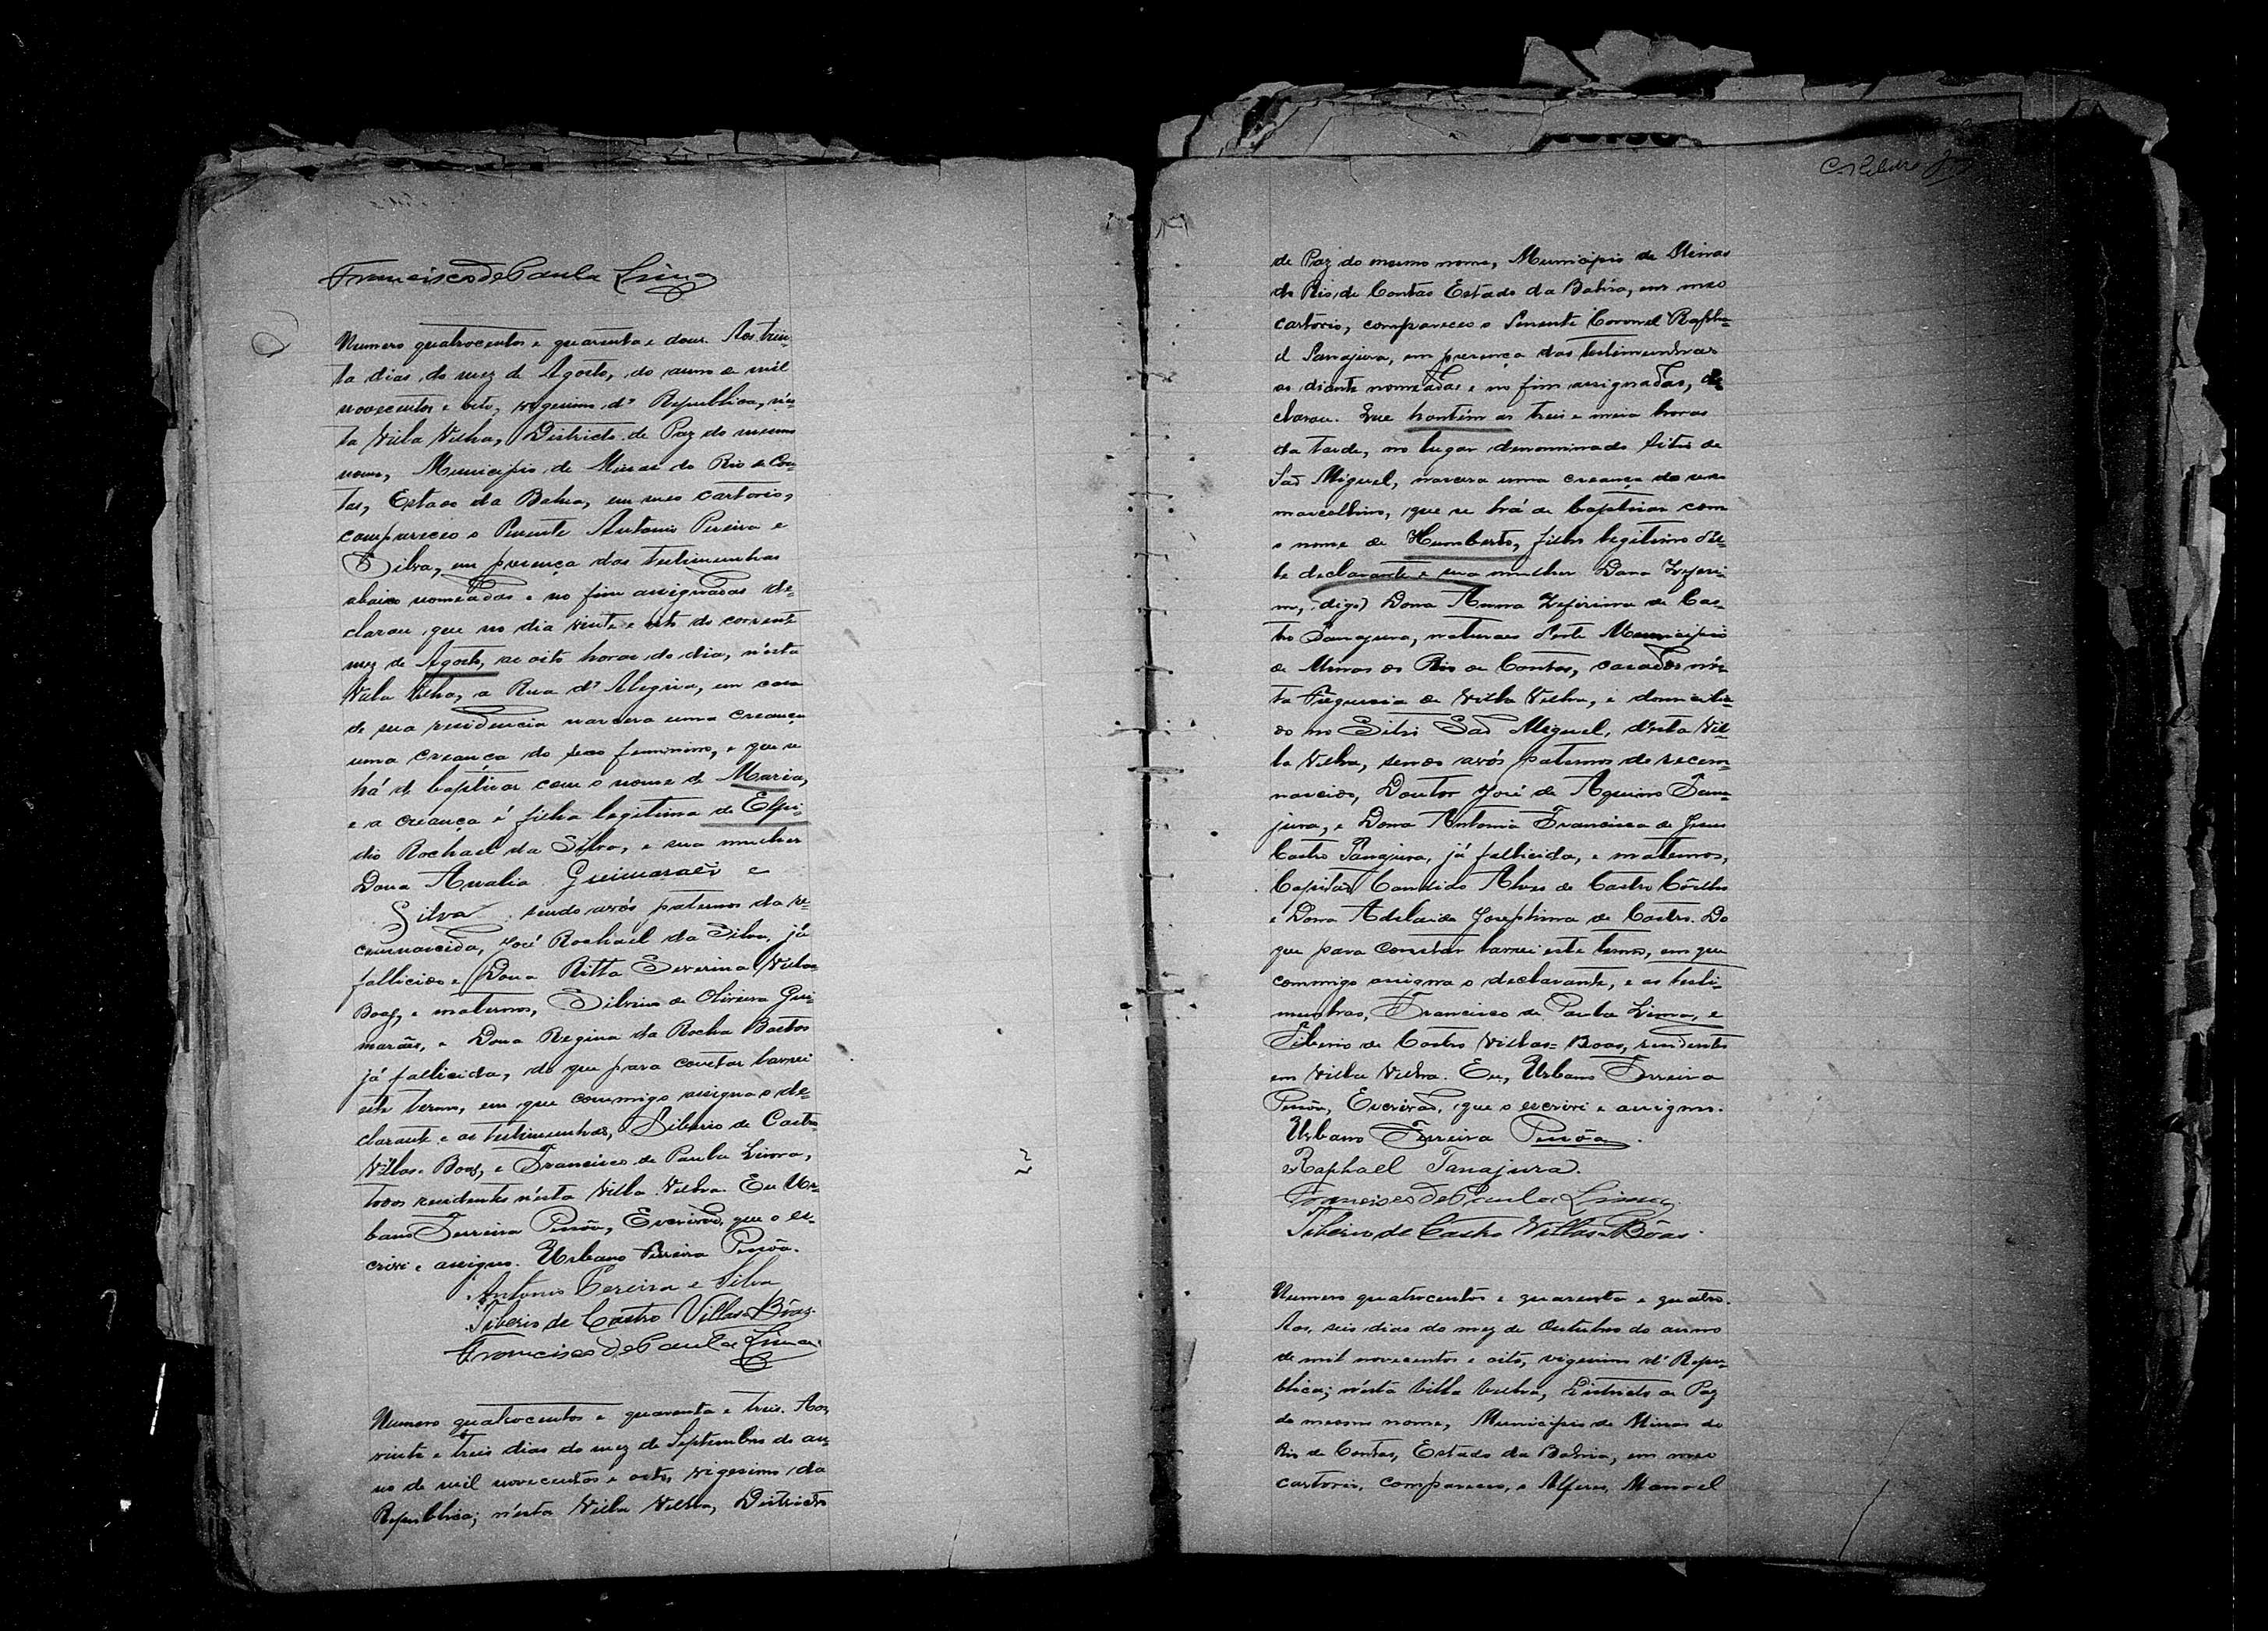 Francisco de Paula Lima
Numero quatrocentos e quarenta e dous. Aos trin-
ta dias do mez de Agosto, do anno de mil
novecentos e oito, vigesimo d' Republica, n'es-
ta Villa Velha, Districto de Paz do mesmo
nome, Municipio de Minas do Rio de Con-
tas, Estado da Bahia, em meo cartorio,
compareceo o Tenente Antonio Pereira e
Silva, em presença das testimunhas
abaixo nomeadas e no fim assignadas de-
clarou, que no dia vinte e oito do corrente
mez de Agosto, as oito horas do dia, n'esta
Villa Velha, a Rua d' Alegria, em casa
de sua residencia nascera uma creança
uma creança do sexo feminino, e que se
há de baptisar com o nome de Maria,
e a creança é filha legitima de Elpi-
dio Rochael da Silva, e sua mulher
Dona Amalia Guimarães e
Silva sendo avós paternos da re-
cemnascida, José Rochael da Silva, já
fallicido e Dona Ritta Severina Villas
Boas, e maternos, Silverio de Oliveira Gui-
marães, e Dona Regina da Rocha Bastos
já fallicida, do que para constar lavrei
este termo, em que commigo assigna o de-
clarante e as testimunhas, Tiberio de Castro
Villas-Boas, e Francisco de Paula Lima,
todos residentes n'esta Villa Velha. Eu Ur-
bano Ferreira Pessôa, Escrivão, que o es-
crivi e assigno. Urbano Ferreira Pessôa.
Antonio Pereira e Silva
Tiberio de Castro Villas Bôas.
Francisco de Paula Lima
Numero quatrocentos e quarenta e treis. Aos
vinte e treis dias do mez de Septembro do an-
no de mil novecentos e oito, vigesimo da
Republica; n'esta Villa Velha, Districto
de Paz do mesmo nome, Municipio de Minas
do Rio de Contas Estado da Bahia, em meo
cartorio, compareceo o Tenente Coronel Rapha-
el Tanajura, em presença das testimunhas
ao diante nomeadas e no fim assignadas, de-
clarou. Que hontém as treis e meia horas
da tarde, no lugar denominado Sitio de
São Miguel, nascera uma creança do sexo
mascolino, que se há de baptisar com
o nome de Humberto, filho legitimo d'es-
te declarante e sua mulher Dona Zeferi-
na, (digo) Dona Anna Zeferina de Cas-
tro Tanajura, naturaes d'este Municipio
de Minas do Rio de Contas, casados n'es-
ta Freguesia de Villa Velha, e domicilia-
do no Sitio São Miguel, d'esta Vil-
la Velha, sendo avós paternos do recem-
nascido, Doutor José de Aquino Tana-
jura, e Dona Antonia Francisca de Jesus
Castro Tanajura, já fallicida, e maternos,
Capitão Candido Alves de Castro Coêlho
e Dona Adelaide Josephina de Castro. Do
que para constar lavrei este termo, em que
commigo assigna o declarante, e as testi-
munhas, Francisco de Paula Lima, e
Tiberio de Castro Villas-Boas, residentes
em Villa Velha. Eu, Urbano Ferreira
Pessôa, Escrivão, que o escrivi e assigno.
Urbano Ferreira Pessôa.
Raphael Tanajura.
Francisco de Paula Lima
Tiberio de Castro Villas Bôas.
Numero quatrocentos e quarenta e quatro.
Aos, seis dias do mez de Outubro do anno
de mil novecentos e oito, vigesimo d' Repu-
blica; n'esta Villa Velha, Districto de Paz
do mesmo nome, Municipio de Minas do
Rio de Contas, Estado da Bahia, em meo
cartorio, compareceo, o Alferes, Manoel